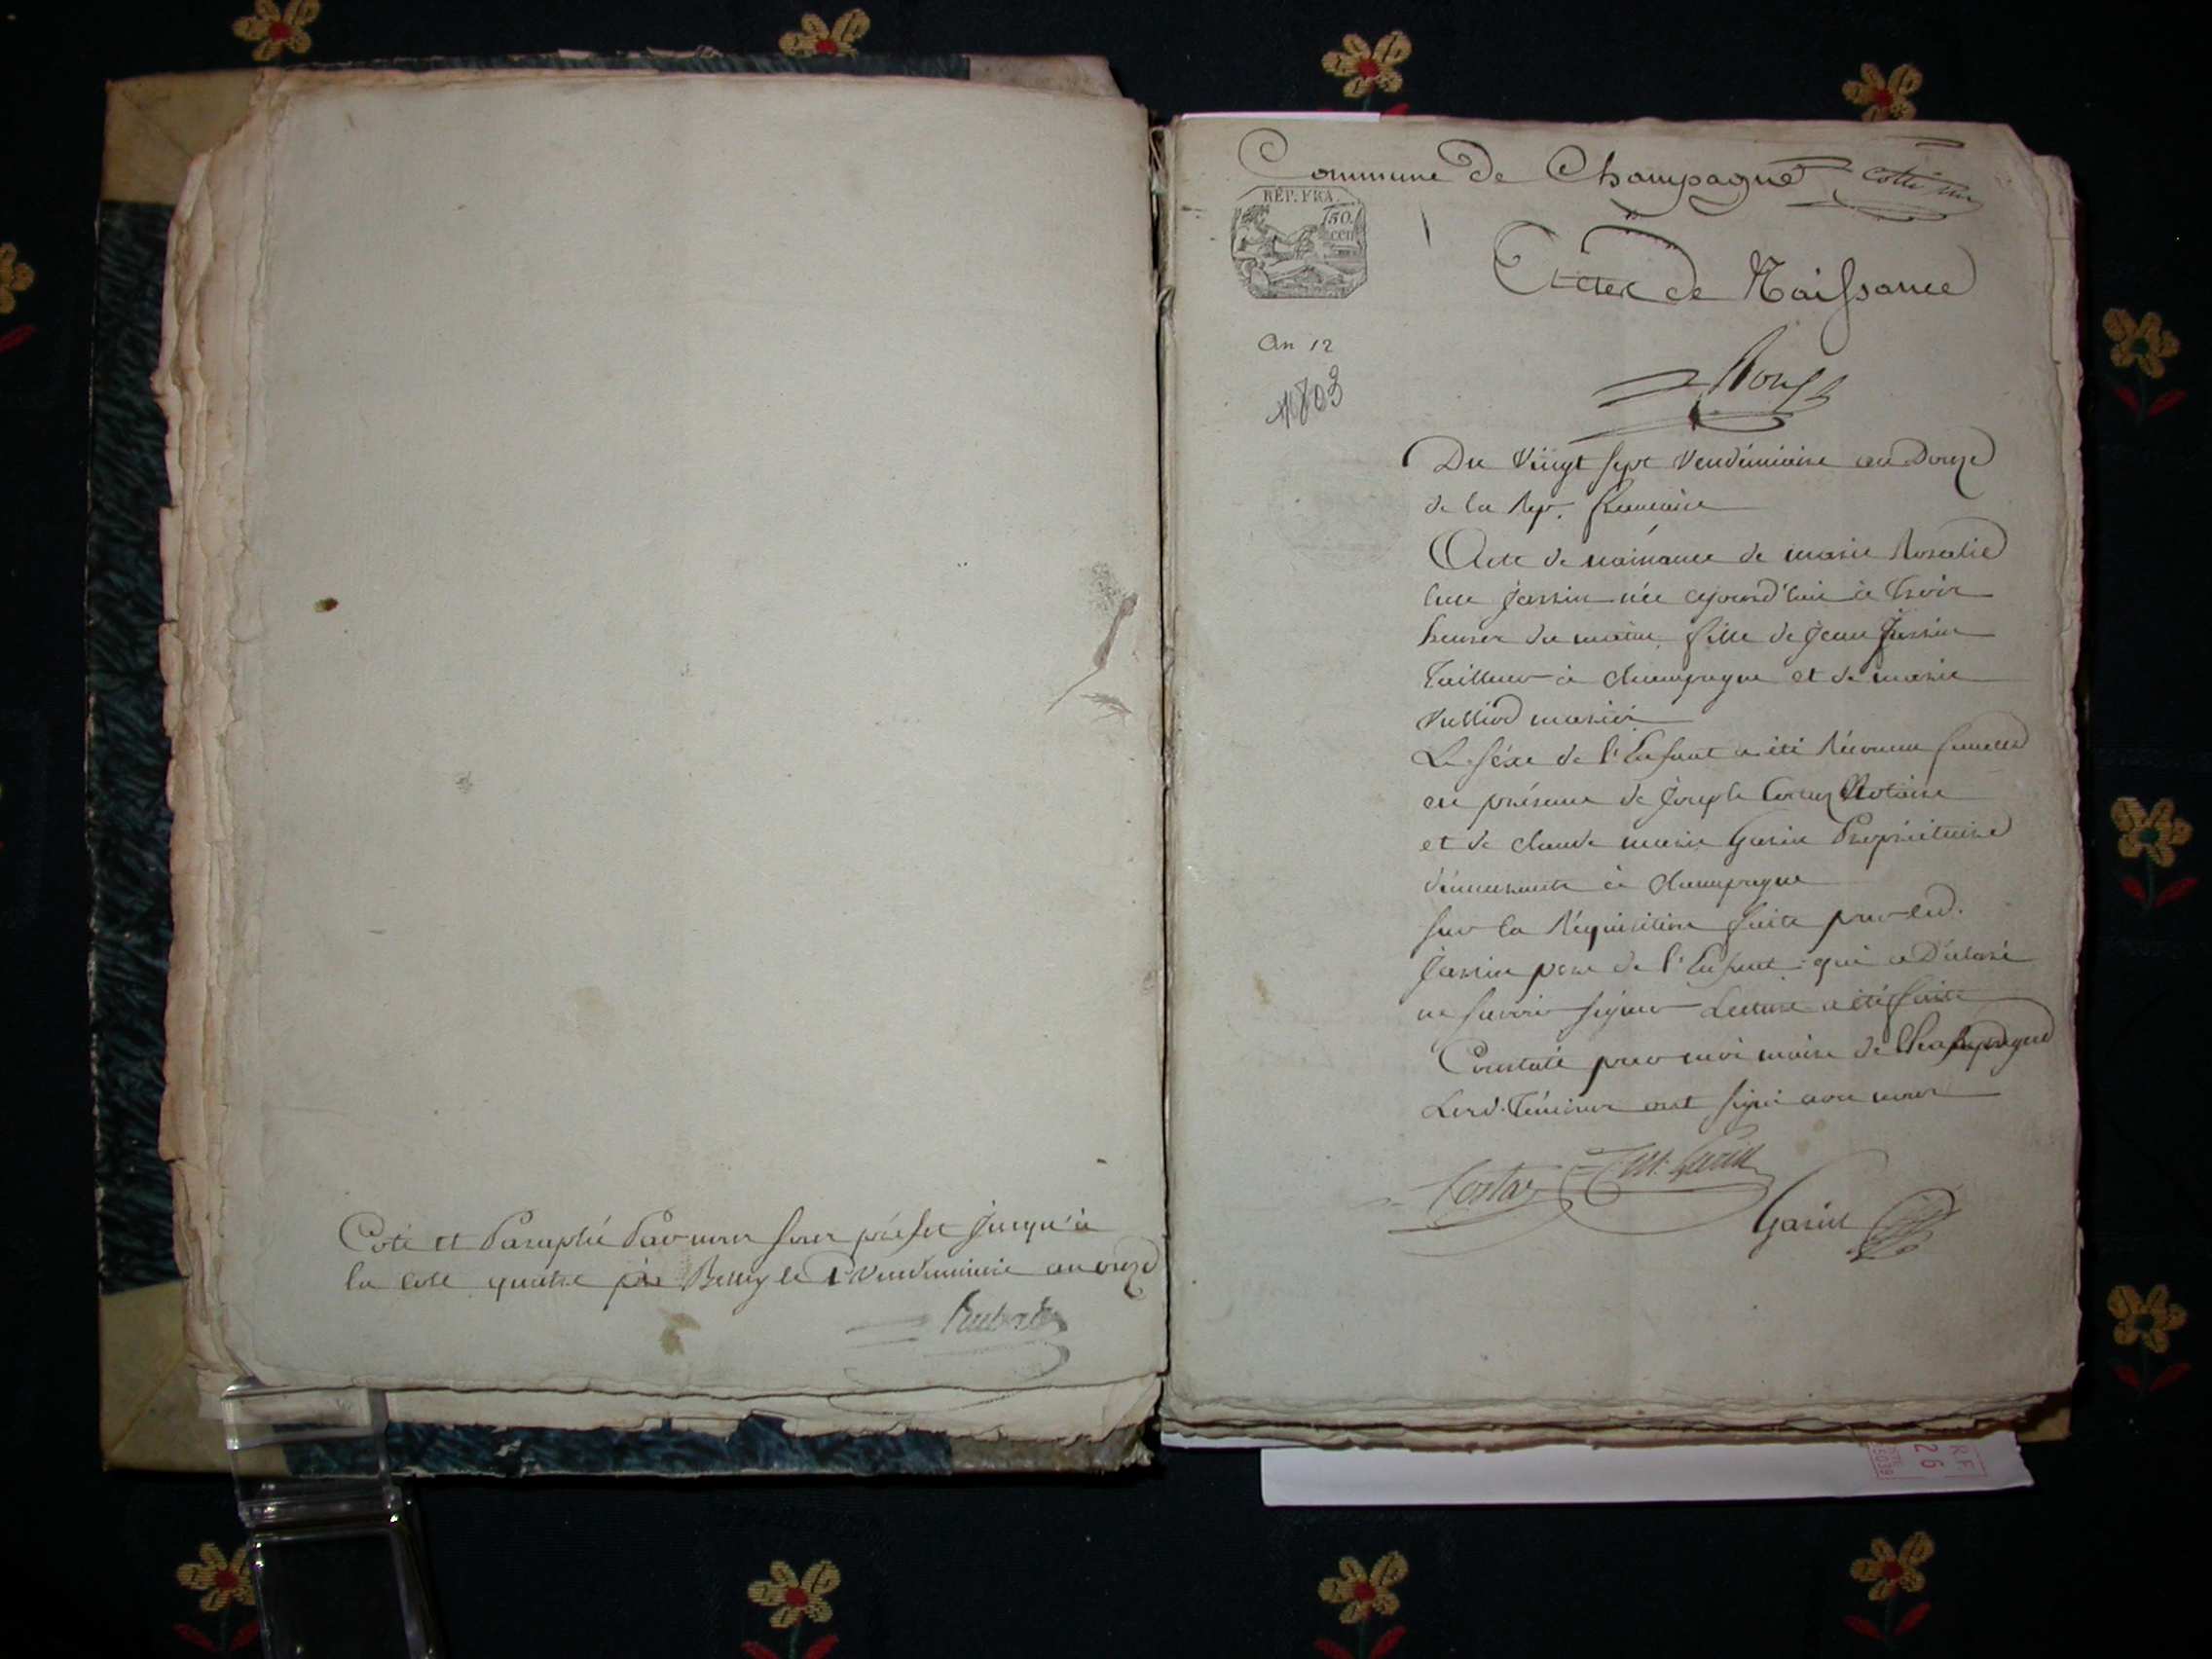 Coté et Paraphé Par nous sous préfet jusqu'à
la cote quatre Belley le Vendemiaire an onze
Commune de Champagne
RÉP. FRA.
50
cen
Actes de Naissance
An 12
1803
Du Vingt sept Vendémiaire an Douze
de la Rép. francaise
Acte de naissance de marie Rosalie
Jassin née ajourd'hui à trois
heures du matin fille de Jean Jassin
Tailleur à champagne et de marie
mariés
Le séxe de l'Enfant a été Réconnu
en présence de Joseph Notaire
et de claude marie Garin Propriétaire
démeurants à champagne
sur la Réquisition faite par led.
Jassin pere de l'Enfant qui a Déclaré
ne savoir signer Lecture a été faite
Constaté par moi maire de Champagne
Lesd. Témoins ont signé avec nous
Garin
RF
26